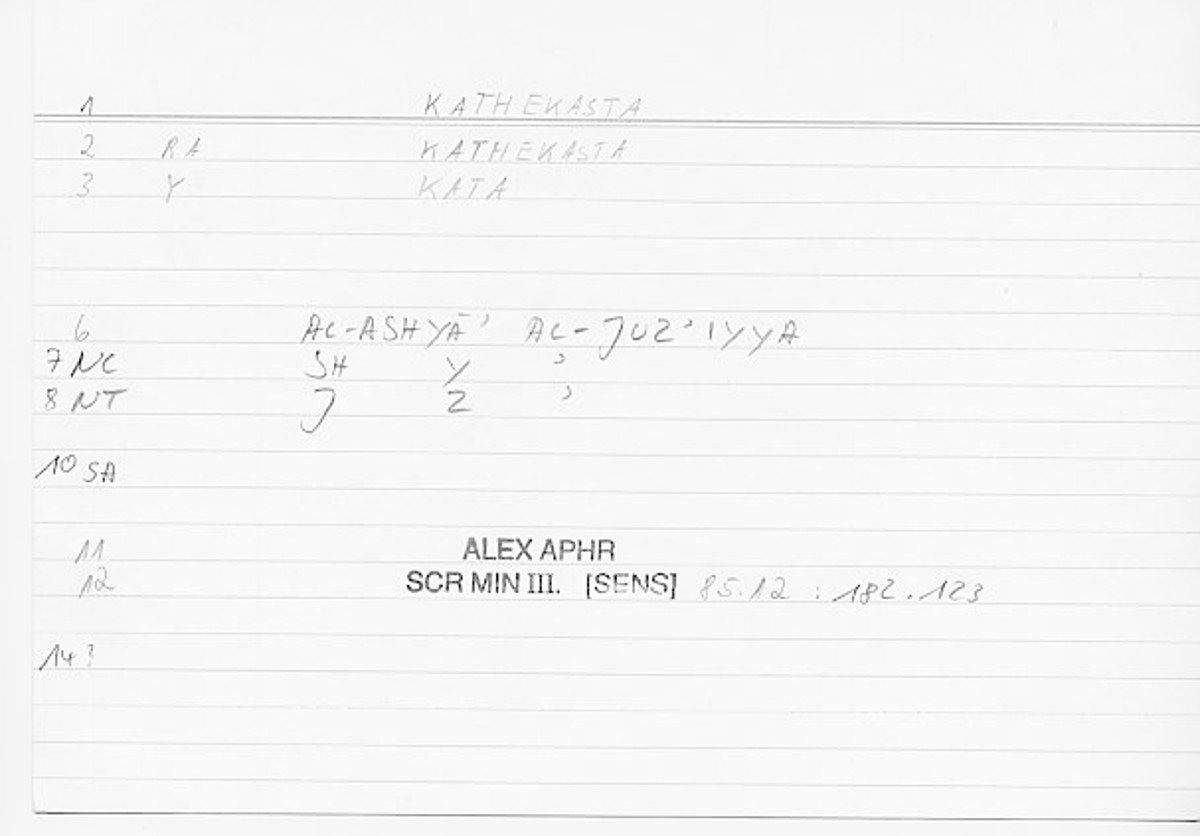 1 KATHEKASTA
2 RA KATHEKASTA
3 Y KATA
6 AL-ASHYĀʾ AL-JUZʾIYYA
7 NC SH Y ʾ
8 NT J Z ʾ
10 SA
11 ALEX APHR
12 SCR MIN III. [SENS] 85.12 : 182.123
14 ?